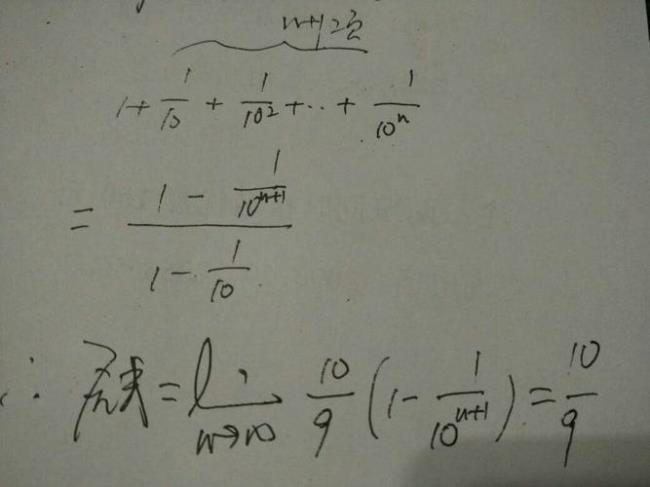 n+1项
1 + 1/10 + 1/10² + ... + 1/10ⁿ
= (1 - 1/10ⁿ⁺¹) / (1 - 1/10)
∴ 原式 = lim n→∞ 10/9 (1 - 1/10ⁿ⁺¹) = 10/9